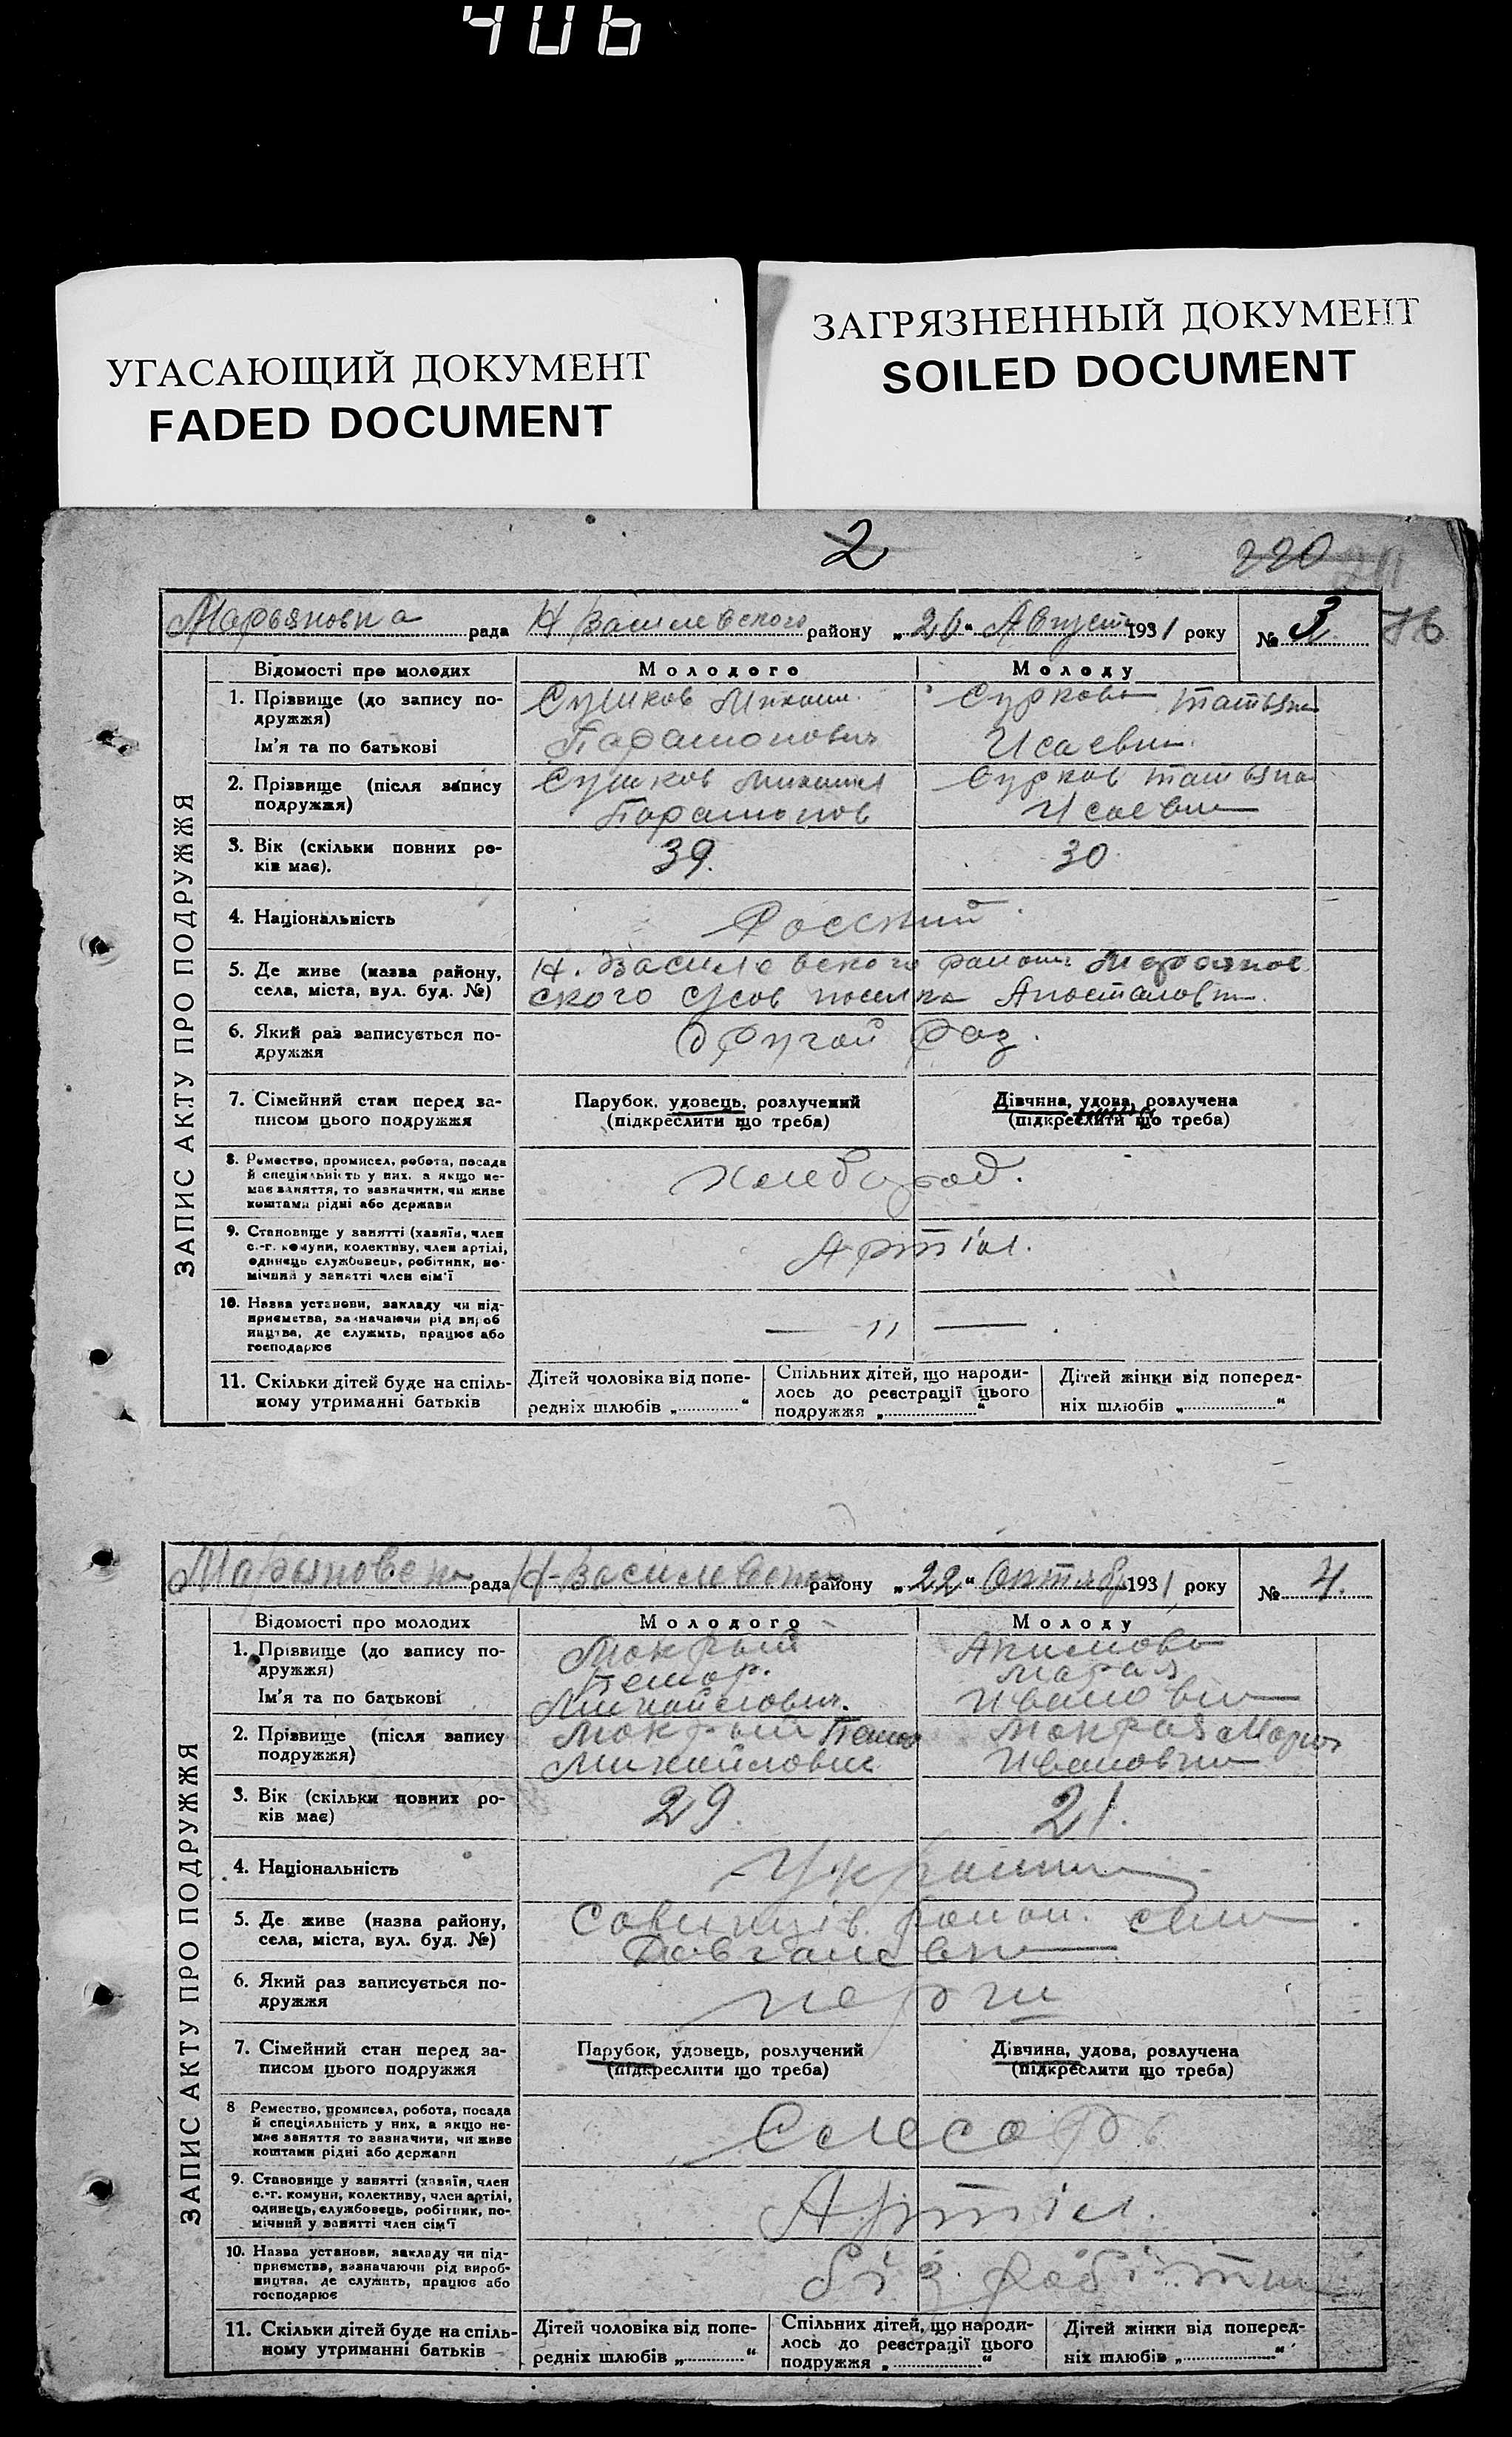 406
УГАСАЮЩИЙ ДОКУМЕНТ
FADED DOCUMENT
ЗАГРЯЗНЕННЫЙ ДОКУМЕНТ
SOILED DOCUMENT
2
220
Марьяновка рада Н Василевского району „26“ Август 1931 року № 3
ЗАПИС АКТУ ПРО ПОДРУЖЖЯ
Відомості про молодих Молодого Молоду
1. Прізвище (до запису по-
дружжя)
Ім'я та по батькові
Сушков Михаил
Парамонович
Суркова Татьяна
Исаевн
2. Прізвище (після запису
подружжя)
Сушков Михаил
Парамонов
Сурков Татьяна
Исаевн
3. Вік (скільки повних ро-
ків має).
39.
30
4. Національність
5. Де живе (назва району,
села, міста, вул. буд. №)
Н. Василевского район
ского
6. Який раз записується по-
дружжя
другой раз.
7. Сімейний стан перед за-
писом цього подружжя
Парубок, удовець, розлучений
(підкреслити що треба)
Дівчина, удова, розлучена
(підкреслити що треба)
8. Ремество, промисел, робота, посада
й спеціяльність у них, а якщо не-
має заняття, то зазначити, чи живе
коштами рідні або держави
хлебороб.
9. Становище у занятті (хазяїн, член
с.-г. комуни, колективу, член артілі,
одинець службовець, робітник, по-
мічний у занятті член сім'ї
Артіл.
10. Назва установи, закладу чи під-
приємства, зазначаючи рід вироб
ництва, де служить, працює або
господарює
— " — .
11. Скільки дітей буде на спіль-
ному утриманні батьків
Дітей чоловіка від попе-
редніх шлюбів „............“
Спільних дітей, що народи-
лось до реєстрації цього
подружжя „............“
Дітей жінки від поперед-
ніх шлюбів „............“
рада Н-Василевском району „22“ Октябр 1931 року № 4.
ЗАПИС АКТУ ПРО ПОДРУЖЖЯ
Відомості про молодих Молодого Молоду
1. Прізвище (до запису по-
дружжя)
Ім'я та по батькові
Мокрый
Михайлович.
Акимова
Мария
Ивановн
2. Прізвище (після запису
подружжя)
Мокрый
Михайлович
Мокрая Мария
Ивановн
3. Вік (скільки повних ро-
ків має)
29.
21.
4. Національність
5. Де живе (назва району,
села, міста, вул. буд. №)
район. село
6. Який раз записується по-
дружжя
7. Сімейний стан перед за-
писом цього подружжя
Парубок, удовець, розлучений
(підкреслити що треба)
Дівчина, удова, розлучена
(підкреслити що треба)
8 Ремество, промисел, робота, посада
й спеціяльність у них, а якщо не-
має заняття то зазначити, чи живе
коштами рідні або держави
Слесарь
9. Становище у занятті (хазяїн, член
с.-г. комуни, колективу, член артілі,
одинець, службовець, робітник, по-
мічний у занятті член сім'ї
Артіл.
10. Назва установи, закладу чи під-
приємства, зазначаючи рід вироб-
ництва, де служить, працює або
господарює
11. Скільки дітей буде на спіль-
ному утриманні батьків
Дітей чоловіка від попе-
редніх шлюбів „............“
Спільних дітей, що народи-
лось до реєстрації цього
подружжя „............“
Дітей жінки від поперед-
ніх шлюбів „............“